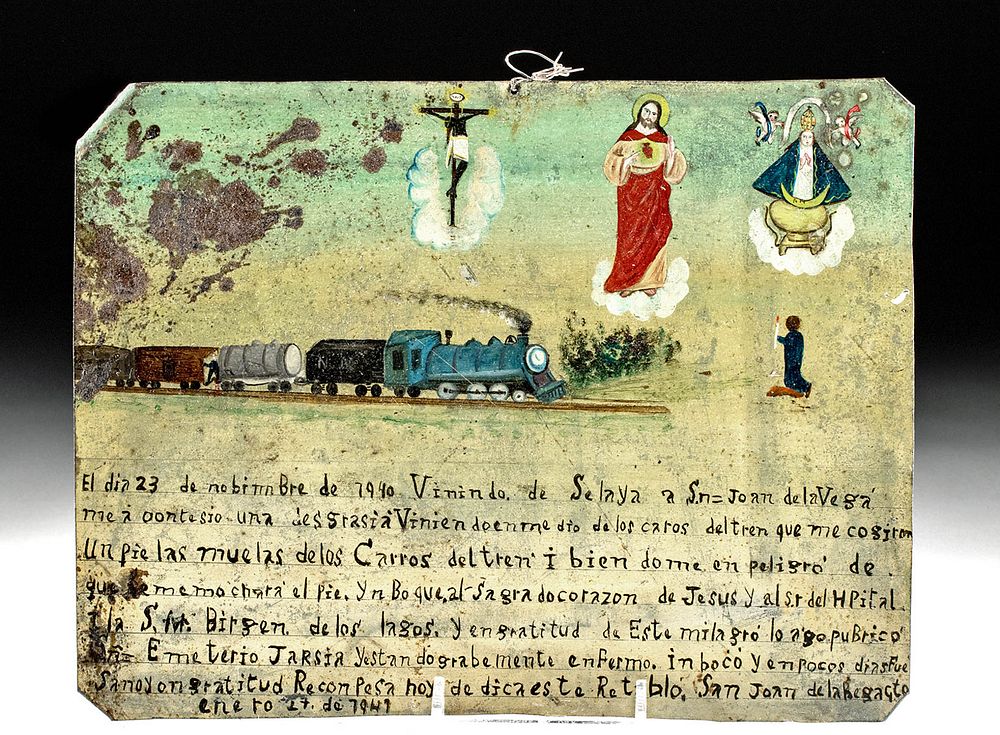 El dia 23 de nobimnbre de 1940 Vinindo. de Selaya a Sn= Joan delaVega
me a contesio una desgrasia Vinien do enme dio de los caros del tren que me cogiron
Un pie las muelas delos Carros deltren i bien dome en peligro de
que memochara el Pie. Yn Boque. al Sagradocorazon de Jesus y al Sr del HPital
la S.M. Birgen. de los lagos. y engratitud de Este milagro lo ago puBrico
Emeterio JARSIA yestan do grabemente enfermo. in boco y en pocos dias Fue
Sano y en gratitud Reconpesa hoy de dica es te Retablo. San Joan delabegagto
enero 27. de 1941